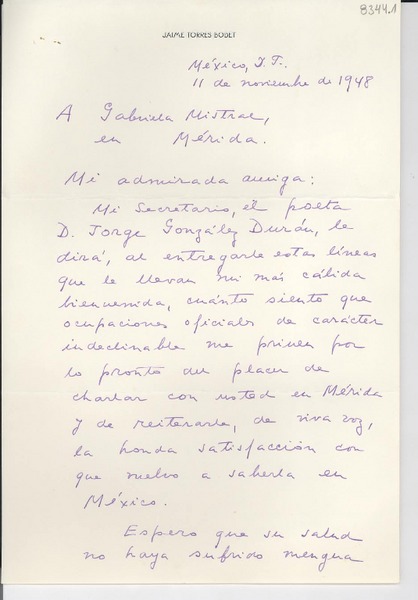 8344.1
JAIME TORRES BODET
México, D.F.
11 de noviembre de 1948
A Gabriela Mistral,
en Mérida.
Mi admirada amiga:
Mi Secretario, el poeta
D. Jorge González Durán, le
dirá, al entregarle estas líneas
que le llevan mi más cálida
bienvenida, cuánto siento que
ocupaciones oficiales de carácter
indeclinable me priven por
lo pronto del placer de
charlar con usted en Mérida
y de reiterarle, de viva voz,
la honda satisfacción con
que vuelvo a saberla en
México.
Espero que su salud
no haya sufrido mengua